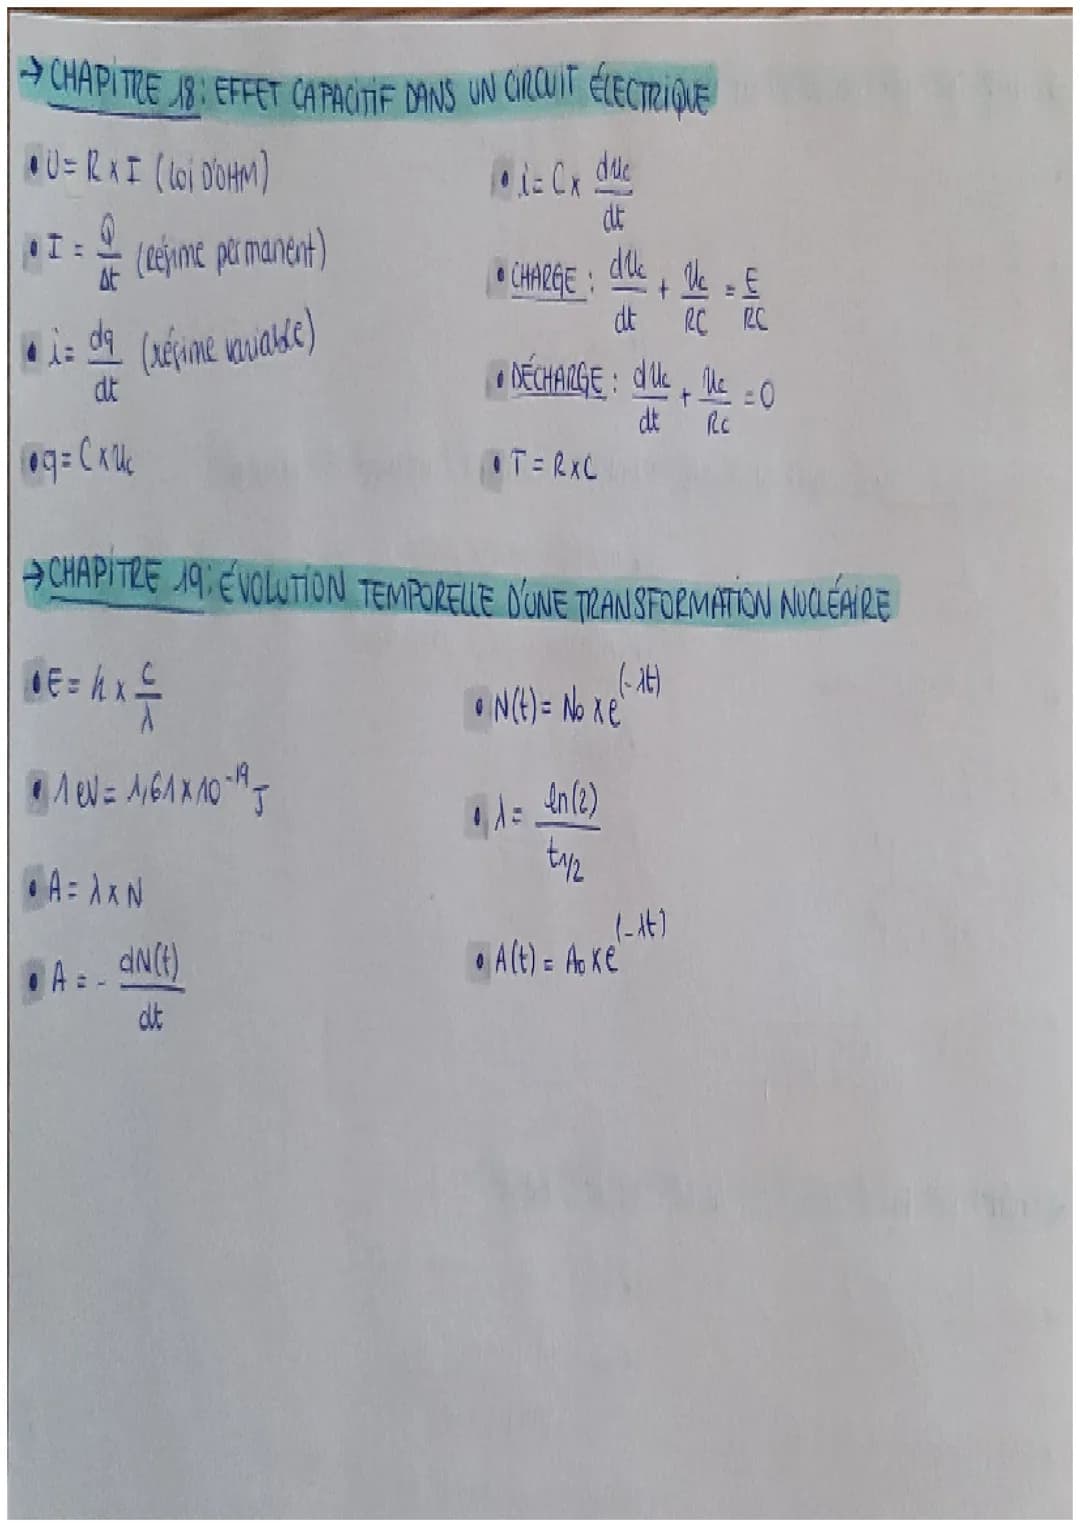 → CHAPITRE 18: EFFET CAPACITIF DANS UN CIRCUIT ÉLECTRIQUE
• U = R x I (LOI D'OHM)
• I = Q/Δt (régime permanent)
• i = dq/dt (régime variable)
• q = C x Uc
• i = C x dUc/dt
• CHARGE : dUc/dt + Uc/RC = E/RC
• DÉCHARGE : dUc/dt + Uc/RC = 0
• T = R x C
→ CHAPITRE 19: ÉVOLUTION TEMPORELLE D'UNE TRANSFORMATION NUCLÉAIRE
• E = h x c/λ
• 1 eV = 1,61 x 10^-19 J
• A = λ x N
• A = - dN(t)/dt
• N(t) = N0 x e^(-λt)
• λ = ln(2)/t1/2
• A(t) = A0 x e^(-λt)